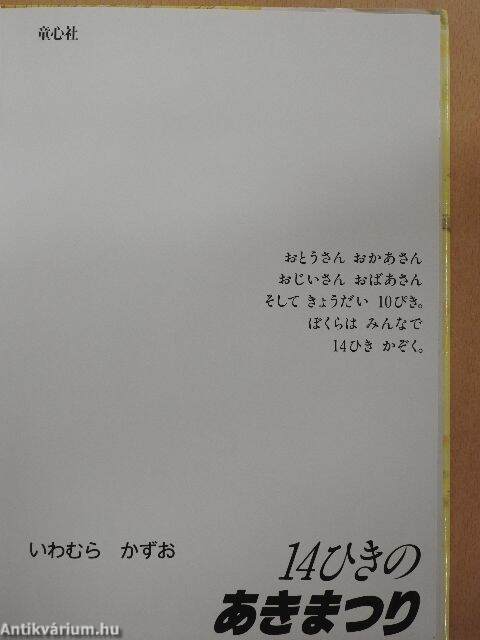 童心社
おとうさん おかあさん
おじいさん おばあさん
そして きょうだい 10ぴき。
ぼくらは みんなで
14ひき かぞく。
いわむら かずお
14ひきの
あきまつり
Antikvárium.hu